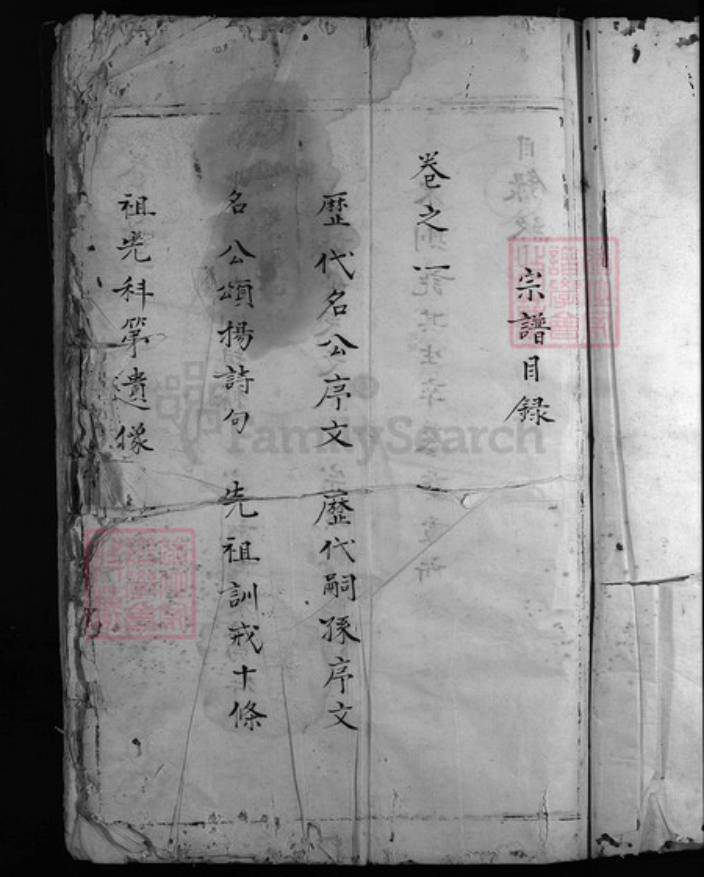 宗譜目錄
卷之一
歷代名公序文 歷代嗣孫序文
名公頌揚詩句 先祖訓戒十條
祖先科第遺像
FamilySearch